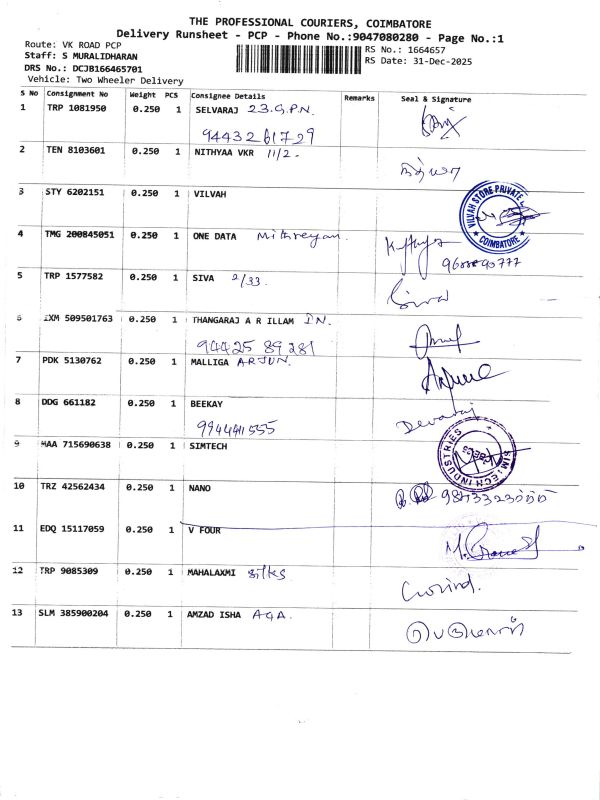 THE PROFESSIONAL COURIERS, COIMBATORE
Delivery Runsheet - PCP - Phone No.:9047080280 - Page No.:1
Route: VK ROAD PCP
Staff: S MURALIDHARAN
DRS No.: DCJB166465701
Vehicle: Two Wheeler Delivery
RS No.: 1664657
RS Date: 31-Dec-2025
S No Consignment No Weight PCS Consignee Details Remarks Seal & Signature
1 TRP 1081950 0.250 1 SELVARAJ 23.G.P.N.
9443261729
2 TEN 8103601 0.250 1 NITHYAA VKR 11/2.
நித்யா
3 STY 6202151 0.250 1 VILVAH
VILVAH STORE PRIVATE
COIMBATORE
4 TMG 200845051 0.250 1 ONE DATA Mithreyan.
5 TRP 1577582 0.250 1 SIVA 2/33.
Siva
6 EXM 509501763 0.250 1 THANGARAJ A R ILLAM IN.
94425 89281
7 PDK 5130762 0.250 1 MALLIGA ARJUN.
8 DDG 661182 0.250 1 BEEKAY
9944441555 Devaraj
9 MAA 715690638 0.250 1 SIMTECH
SIMTECH INDUSTRIES
10 TRZ 42562434 0.250 1 NANO
11 EDQ 15117059 0.250 1 V FOUR
12 TRP 9085309 0.250 1 MAHALAXMI silks
Govind.
13 SLM 385900204 0.250 1 AMZAD ISHA AGA.
பெருமாள்